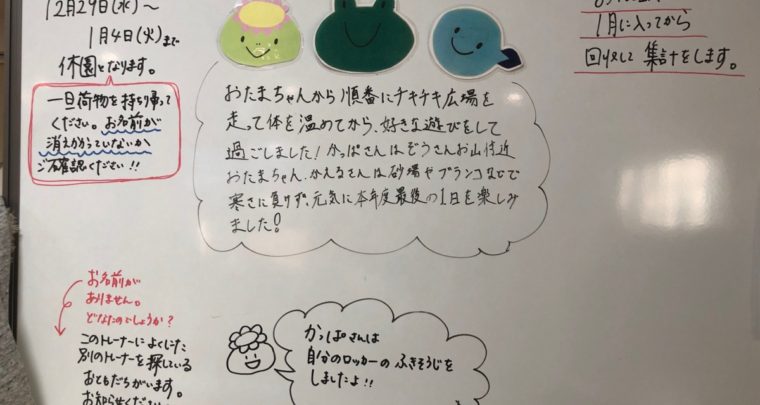 12月29日(水)～
1月4日(火)まで
休園となります。
一旦荷物を持ち帰って
ください。お名前が
消えかかっていないか
ご確認ください!!
おたまちゃんから順番にチキチキ広場を
走って体を温めてから、好きな遊びをして
過ごしました!かっぱさんはぞうさんお山付近
おたまちゃん、かえるさんは砂場やブランコなどで
寒さに負けず、元気に本年度最後の1日を楽しみ
ました!
1月に入ってから
回収して集計をします。
お名前が
ありません。
どなたのでしょうか?
このトレーナーによくにた
別のトレーナーを探している
おともだちがいます。
お知らせください
かっぱさんは
自分のロッカーのふきそうじを
しましたよ!!